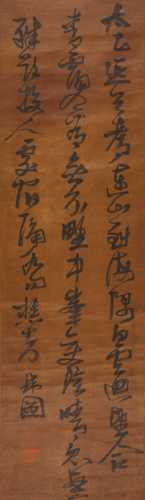 太乙近天都連山到海隅白雲迴望合
青靄入看無分野中峯變陰晴衆壑
殊欲投人處宿隔水問樵夫